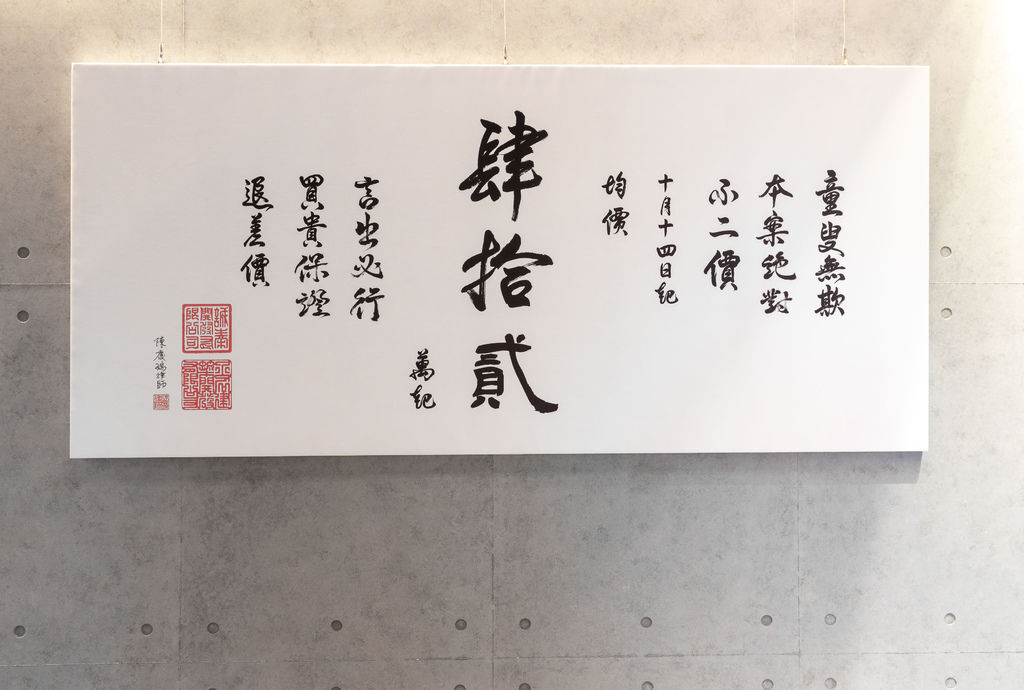 童叟無欺
本案絕對
不二價
十月十四日起
均價
肆拾貳
萬起
言出必行
買貴保證
退差價